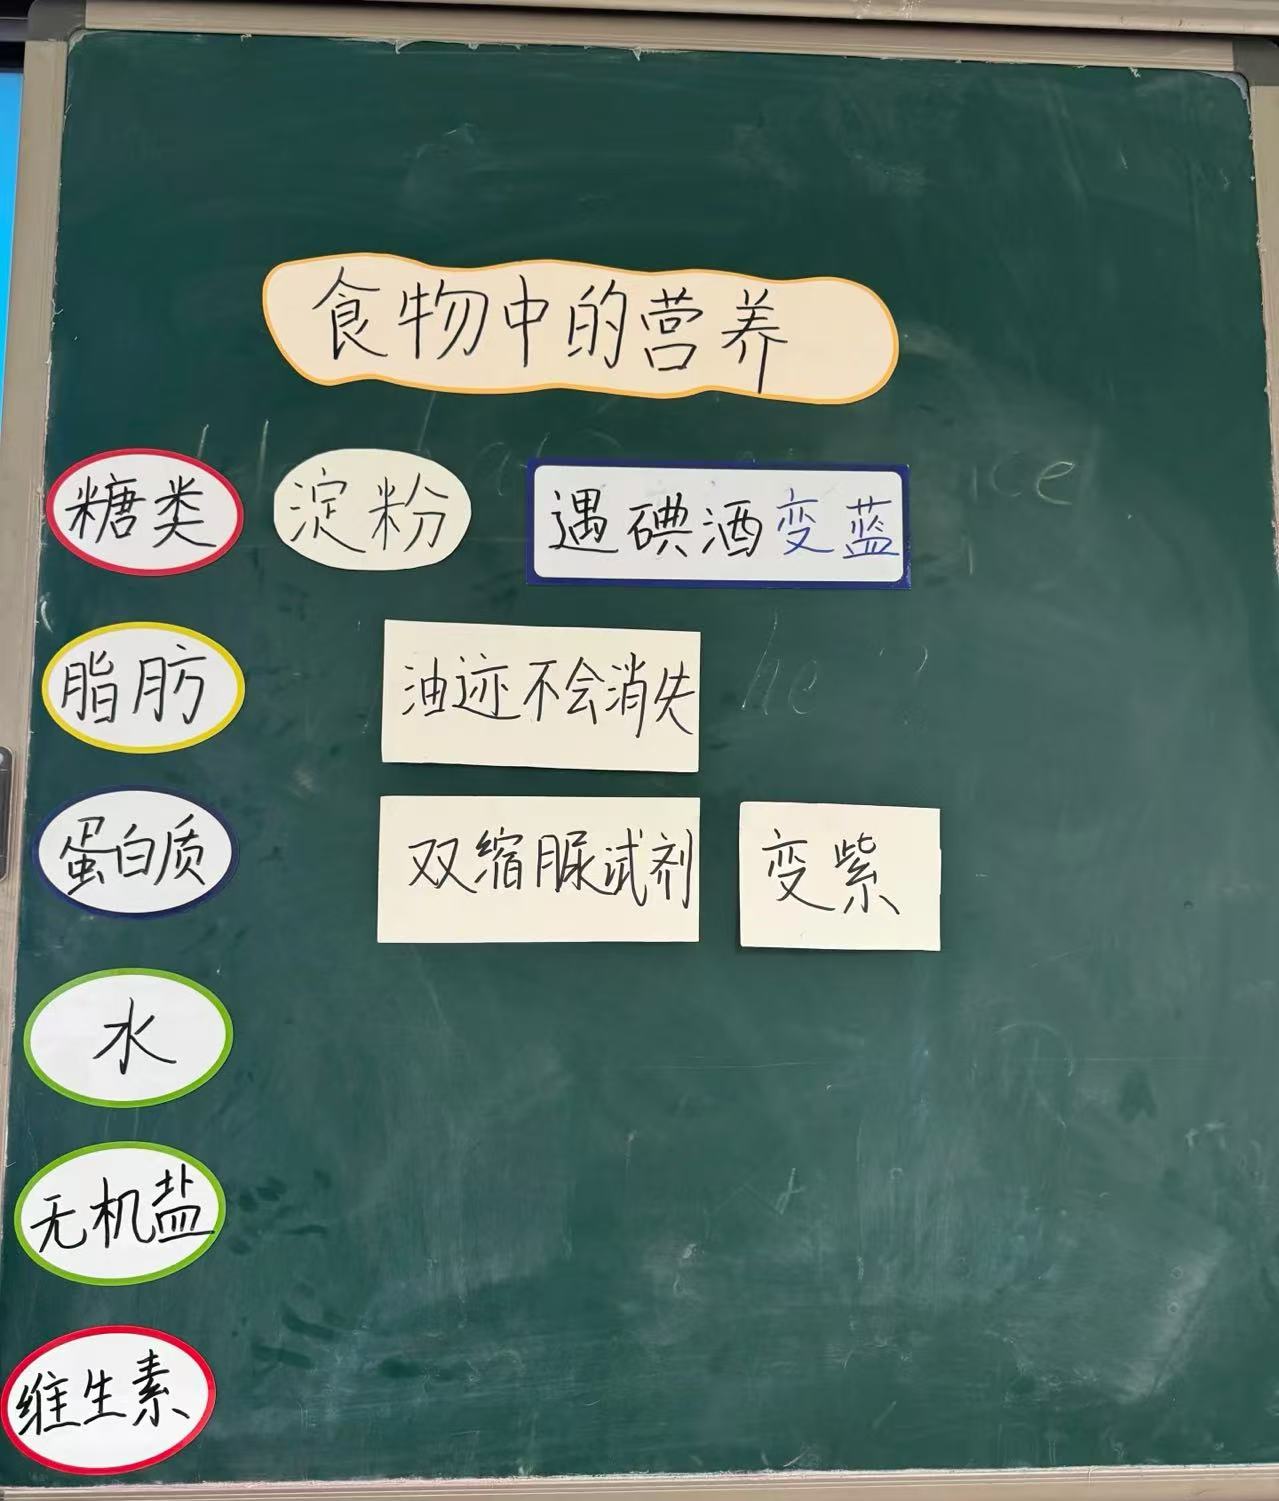 食物中的营养
糖类 淀粉 遇碘酒变蓝
脂肪 油迹不会消失
蛋白质 双缩脲试剂 变紫
水
无机盐
维生素